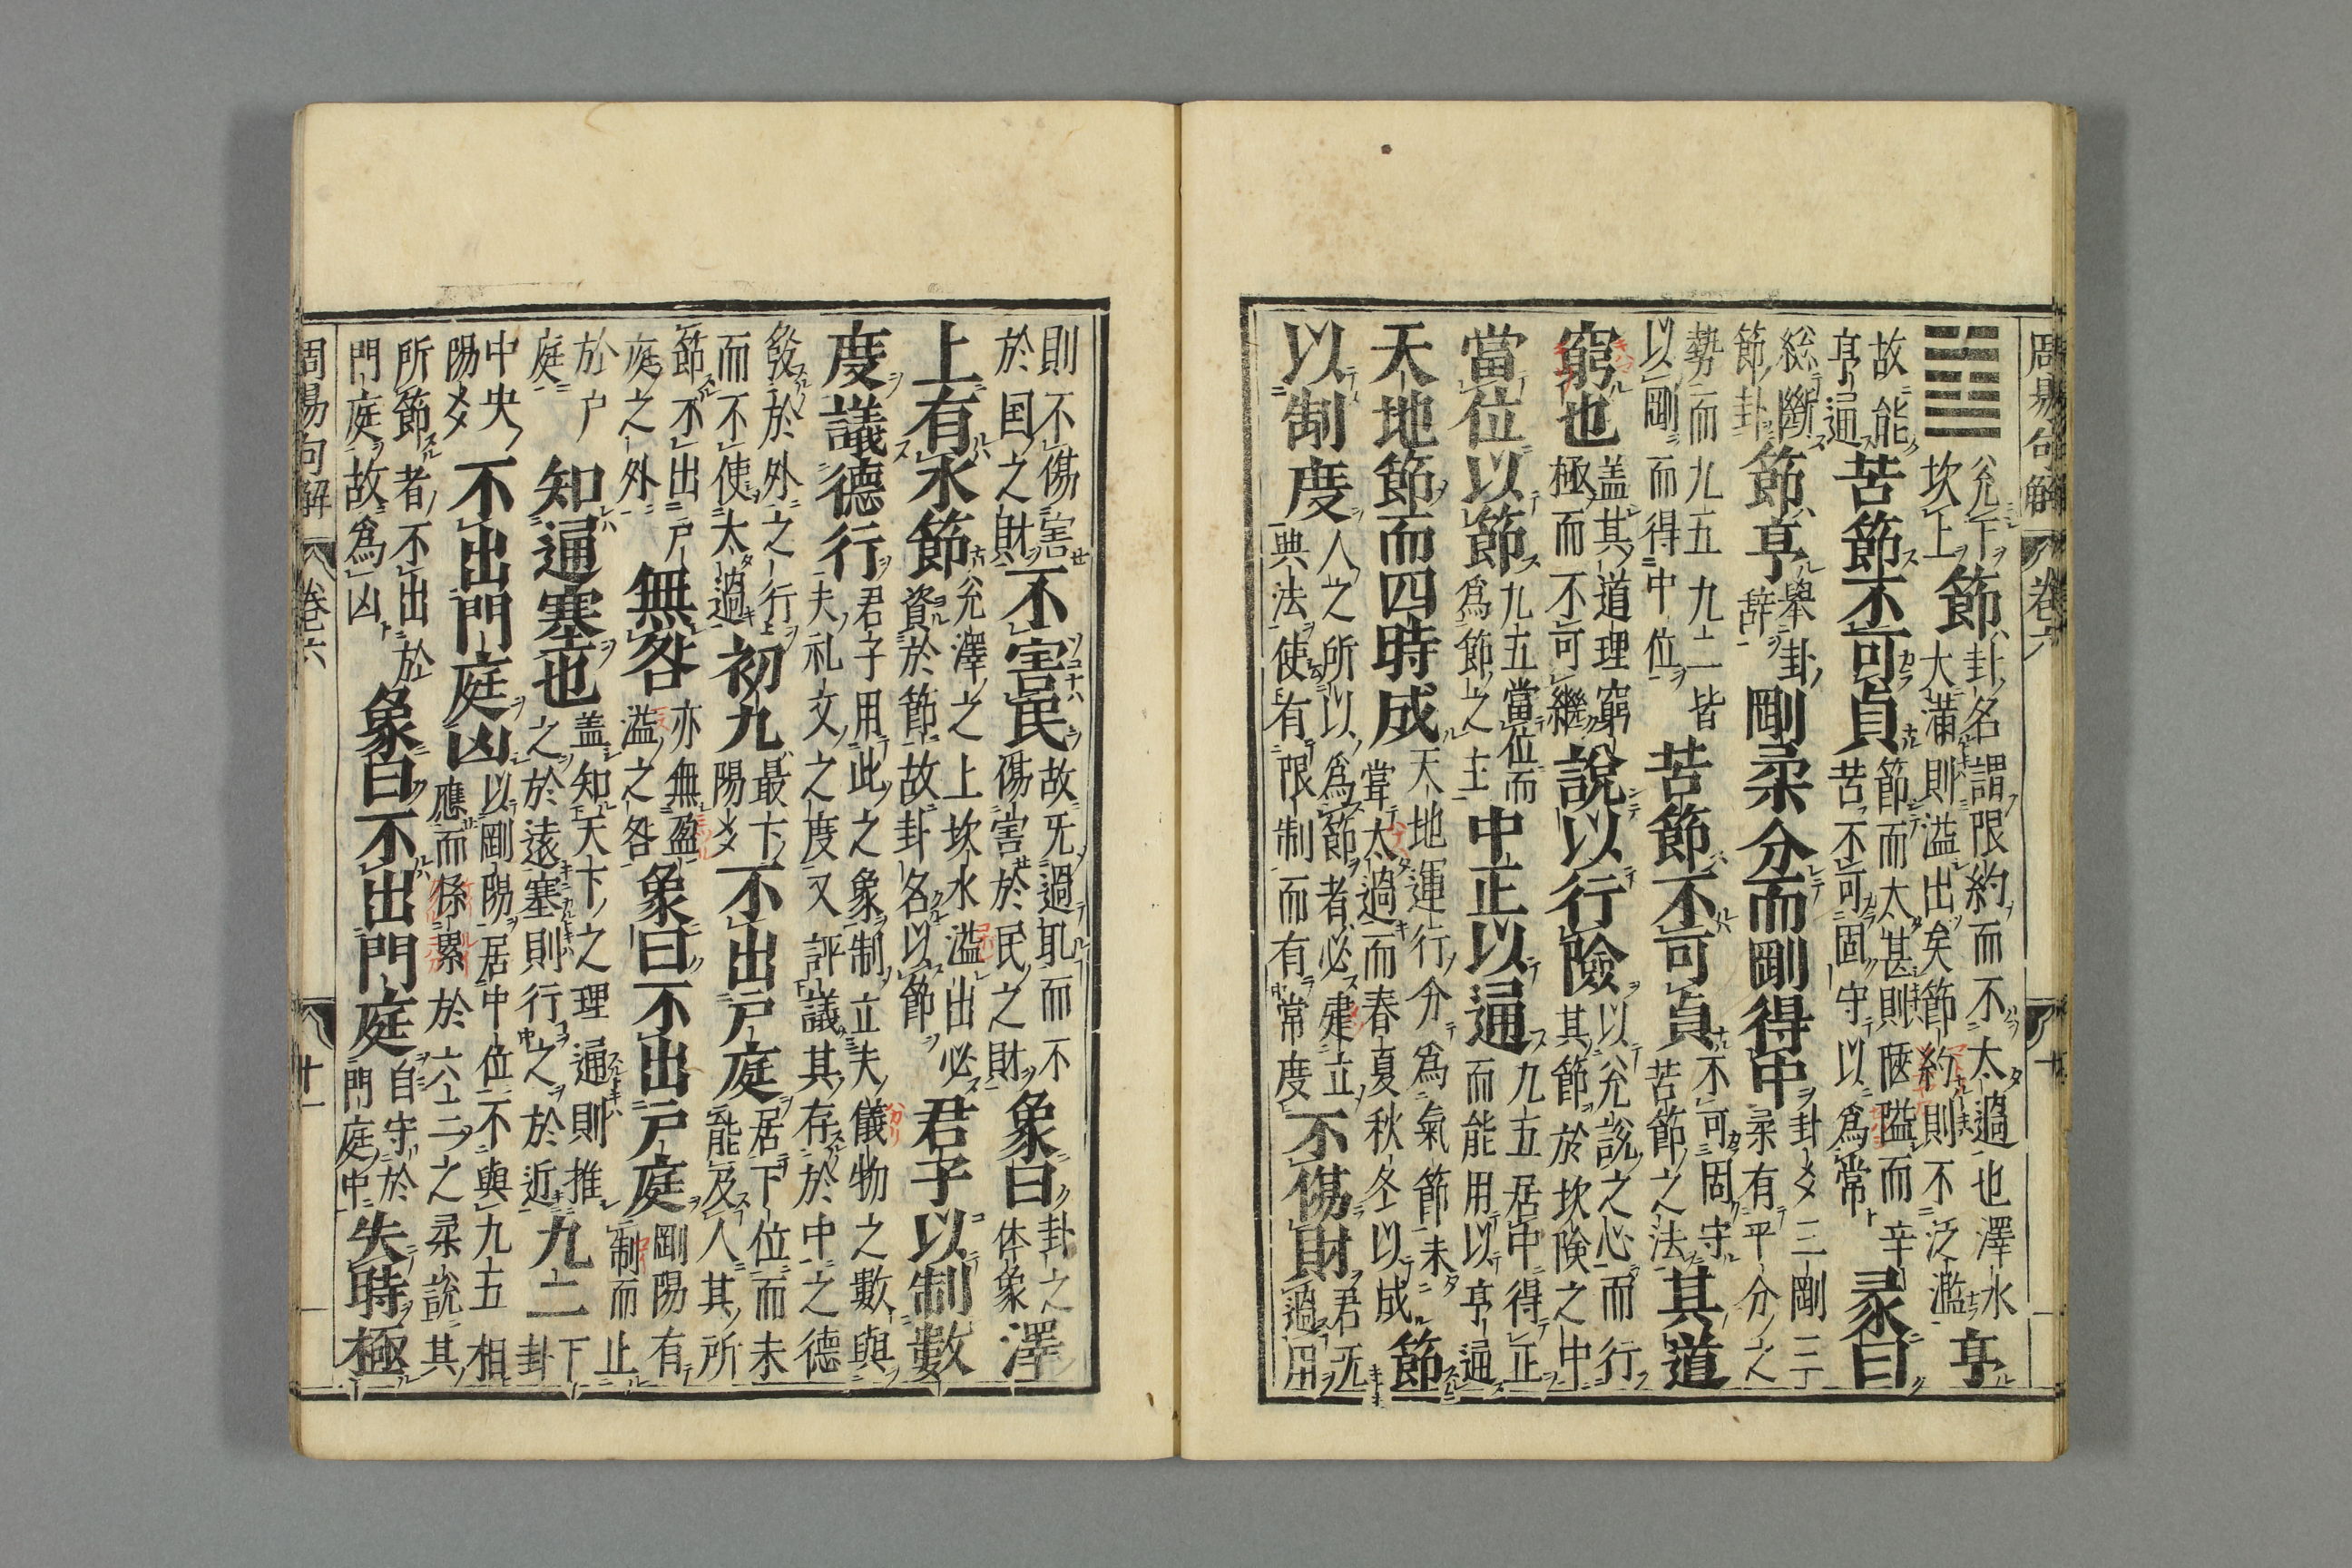 周易句解 卷六 十一
兊下坎上節卦名謂限約而不太過也澤水大滿則溢出矣節約則不泛濫亨
故能亨通苦節不可貞節而太甚則陿隘而辛苦不可固守以爲常彖曰
総斷節卦節亨舉卦辞剛柔分而剛得中卦乂三剛三柔有平分之
勢而九五九二皆以剛而得中位苦節不可貞不可固守苦節之法其道
窮也盖其道理窮極而不可繼說以行險以兊說之心而行其節於坎険之中
當位以節九五當位而爲節之主中正以通九五居中得正而能用以亨通
天地節而四時成天地運行分爲氣節未甞太過而春夏秋冬以成節
以制度人之所以爲節者必建立典法使有限制而有常度不傷財君旡過用
則不傷害於国之財不害民故旡過耴而不傷害於民之財象曰卦之体象澤
上有水節兊澤之上坎水溢出必資於節故卦名以節君子以制數
度議德行君子用此之象制立夫儀物之數與夫礼文之度又評議其存於中之德
發於外之行而不使太過初九最下陽乂不出戸庭居下位而未能及人其所
節不出戸庭之外無咎亦無盈溢之咎象曰不出戸庭剛陽有制而止
於户庭知通塞也盖知天下之理通則推之於遠塞則行之於近九二下卦
中央陽乂不出門庭凶以剛陽居中位不與九五相應而係累於六三之柔說其
所節者不出於門庭故爲凶象曰不出門庭自守於門庭中失時極
周易句解 卷六 十一